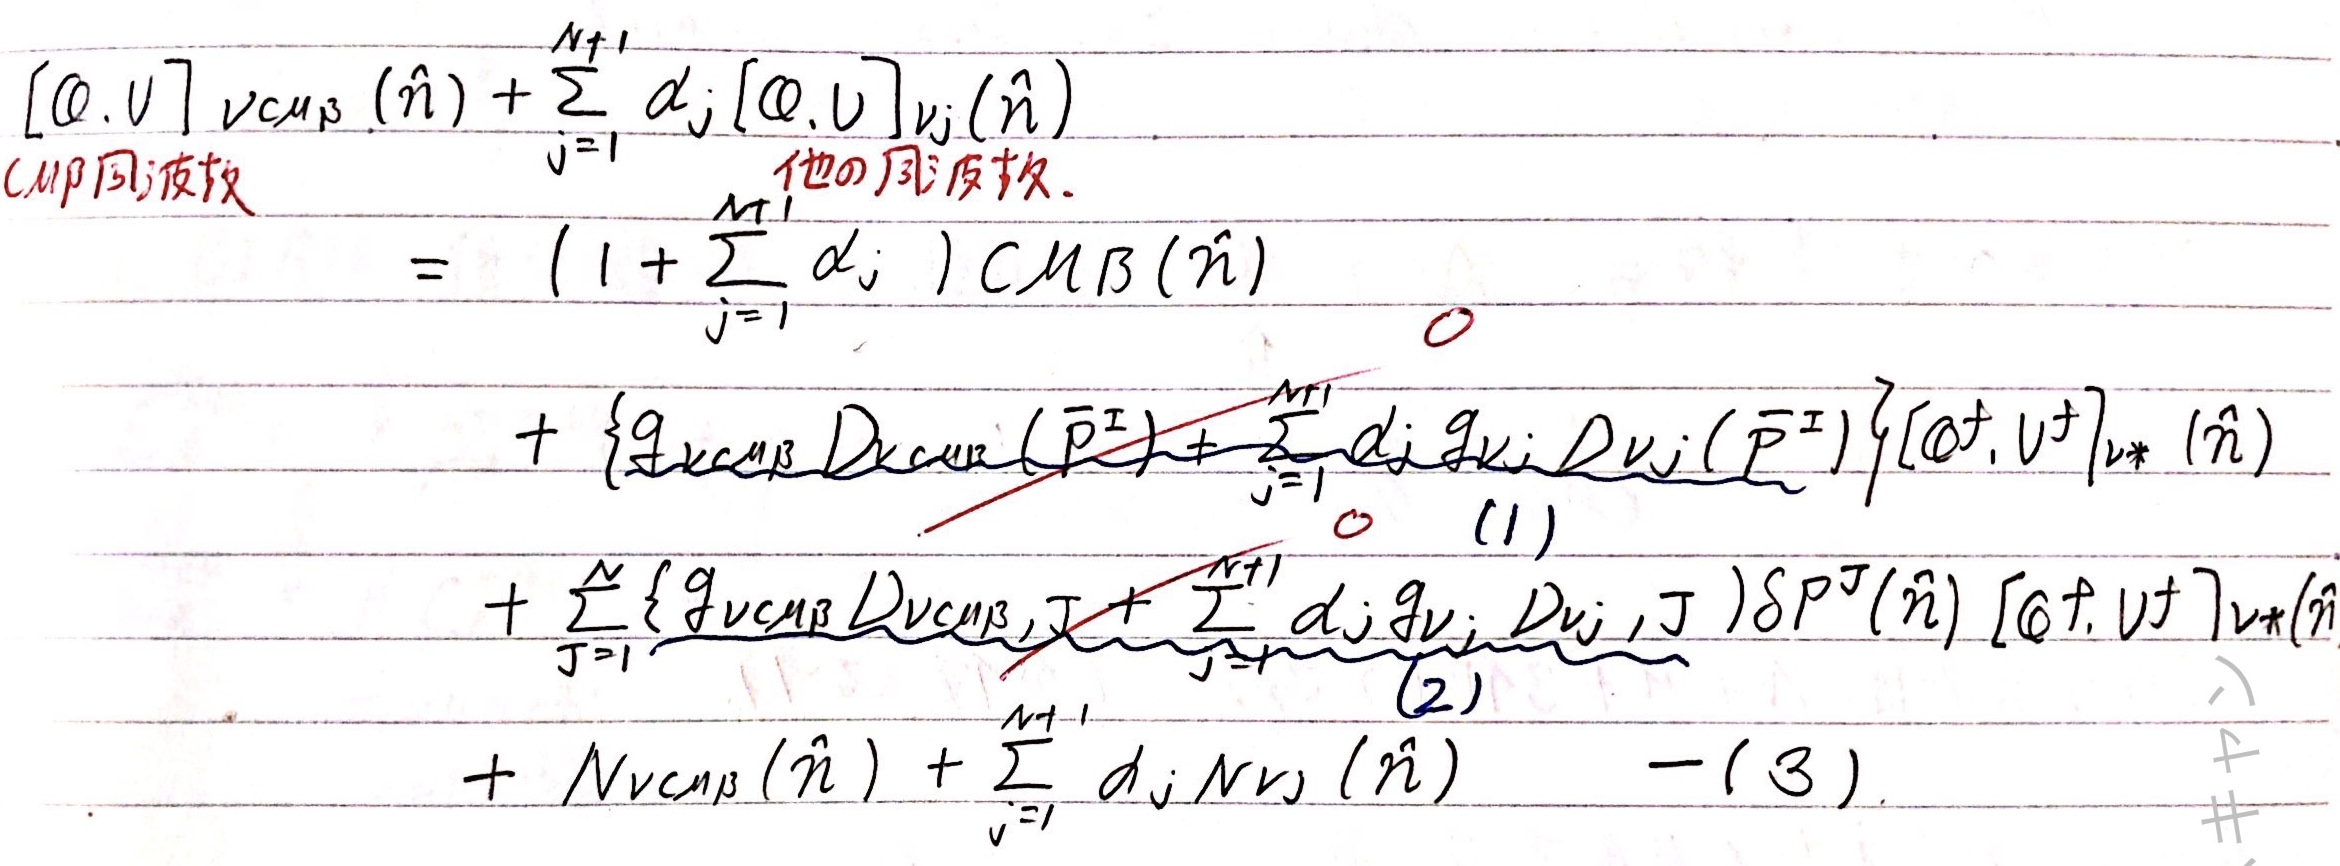 [Q.U]_{νCMB}(n̂) + Σ_{j=1}^{N+1} α_j [Q.U]_{νj}(n̂)
CMB周波数 他の周波数.
= (1 + Σ_{j=1}^{N+1} α_j) CMB(n̂)
0
+ {g_{νCMB} D_{νCMB}(p̄^I) + Σ_{j=1}^{N+1} α_j g_{νj} D_{νj}(p̄^I)} [Q^f.U^f]_{ν*}(n̂)
0 (1)
+ Σ_{J=1}^{N} {g_{νCMB} D_{νCMB,J} + Σ_{j=1}^{N+1} α_j g_{νj} D_{νj,J}) δP^J(n̂) [Q^f.U^f]_{ν*}(n̂
(2)
+ N_{νCMB}(n̂) + Σ_{j=1}^{N+1} α_j N_{νj}(n̂) -(3).